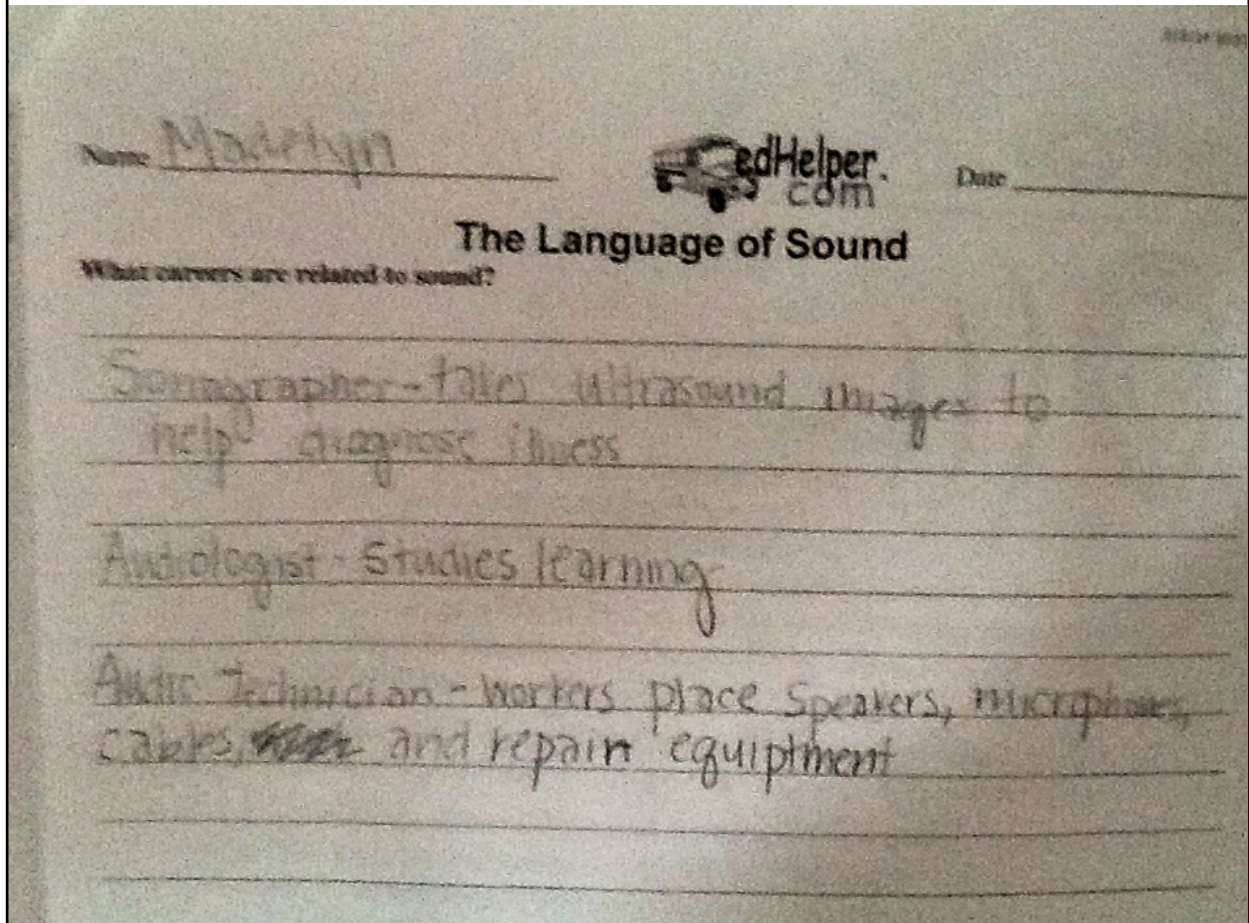 Name Madelyn
edHelper.
com
Date
The Language of Sound
What careers are related to sound?
Sonographer - takes ultrasound images to
help diagnose illness
Audiologist - Studies learning
Audio Technician - Workers place Speakers, microphones,
cables, and repair equiptment